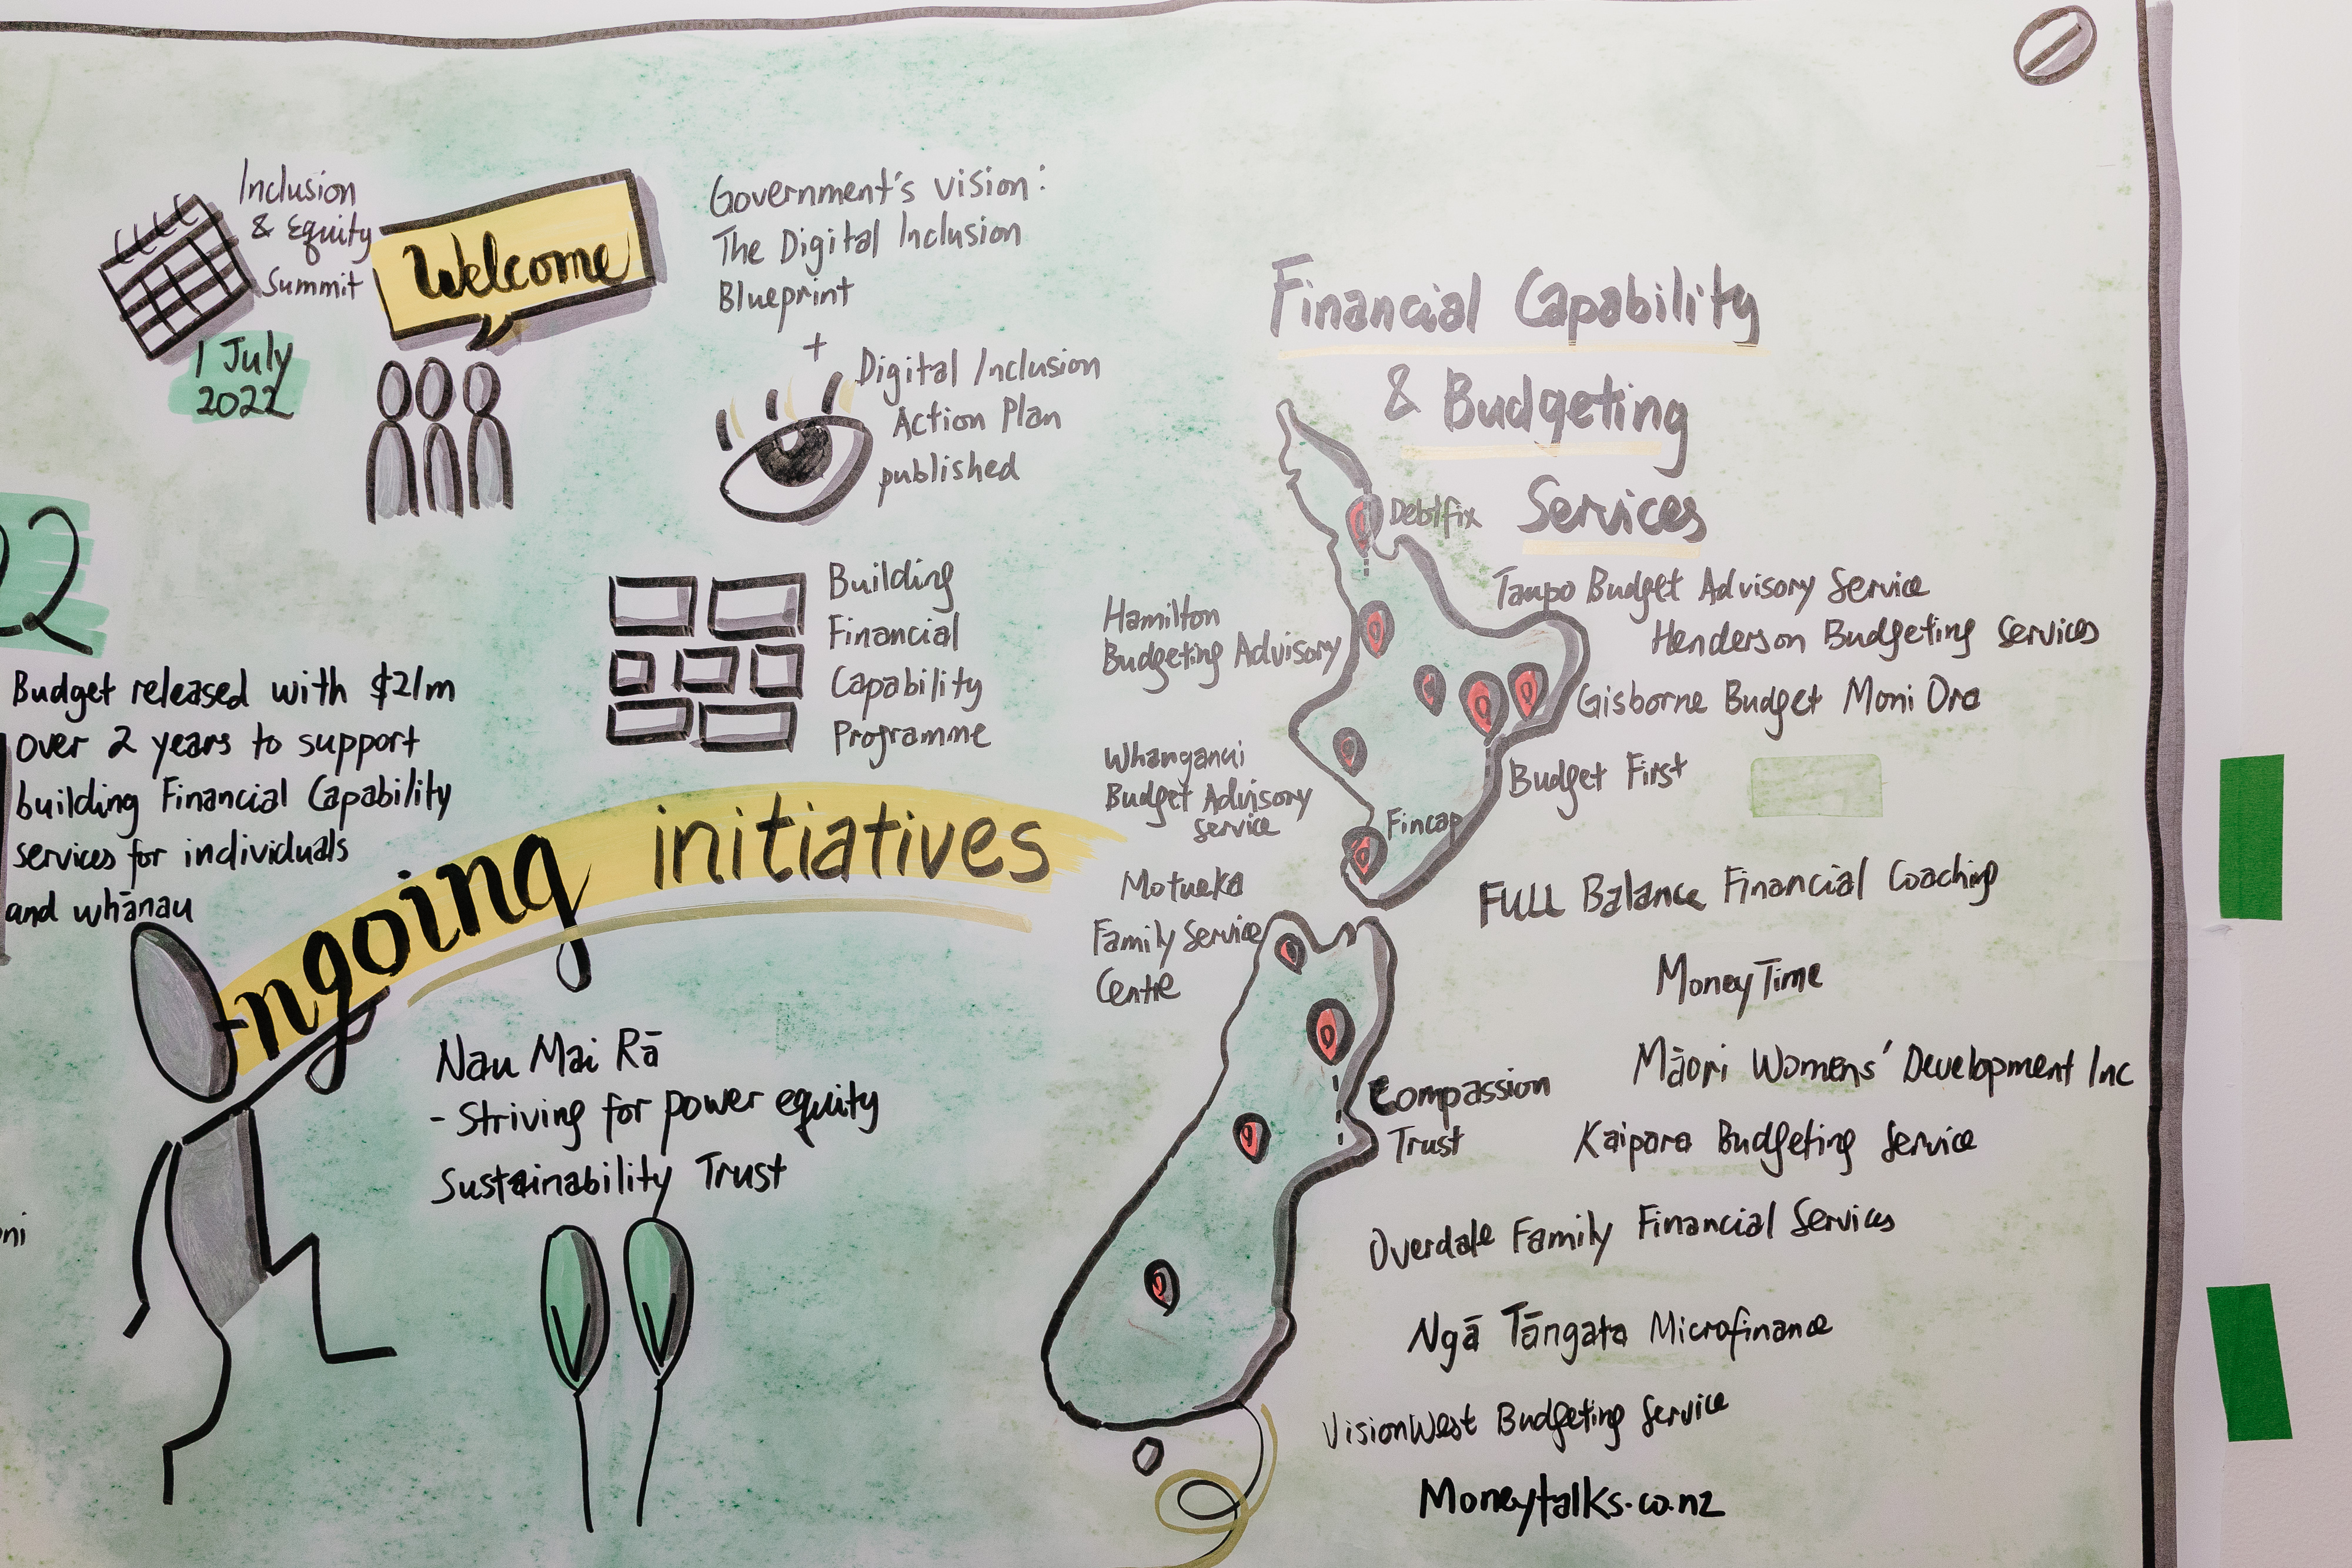 Inclusion
& Equity
Summit
1 July
2022
Welcome
Government's vision:
The Digital Inclusion
Blueprint
+
Digital Inclusion
Action Plan
published
22
Budget released with $21m
over 2 years to support
building Financial Capability
services for individuals
and whānau
Building
Financial
Capability
Programme
Ongoing initiatives
Nau Mai Rā
- Striving for power equity
Sustainability Trust
Financial Capability
& Budgeting
Services
Debtfix
Taupo Budget Advisory Service
Henderson Budgeting Services
Hamilton
Budgeting Advisory
Gisborne Budget Moni Ora
Whanganui
Budget Advisory
Service
Budget First
Fincap
Motueka
Family Service
Centre
FULL Balance Financial Coaching
MoneyTime
Māori Womens' Development Inc
Compassion
Trust
Kaipara Budgeting Service
Overdale Family Financial Services
Ngā Tāngata Microfinance
VisionWest Budgeting Service
Moneytalks.co.nz